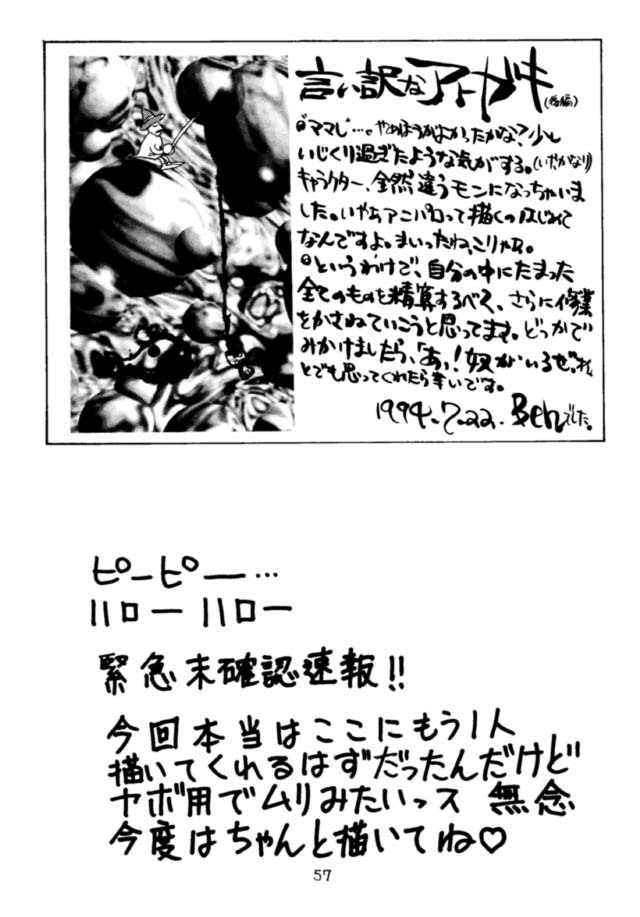 言い訳なアトガキ(後編)
◎"ママレ"…。やめほうがよかったかな?少し
いじくり過ぎたような気がする。(いやかなり)
キャラクター、全然違うモンになっちゃいま
した。いやぁアニパロって描くのはじめて
なんですよ。まいったね、こりゃあ。
◎というわけで、自分の中にたまった
全てのものを精算するべく、さらに修業
をかさねていこうと思ってます。どっかで
みかけましたら、「あっ!奴がいるぜ。」
とでも思ってくれたら幸いです。
1994.7.22. Benでした。
ピーピー…
ハローハロー
緊急未確認速報!!
今回本当はここにもう1人
描いてくれるはずだったんだけど
ヤボ用でムリみたいっス 無念
今度はちゃんと描いてね♡
57